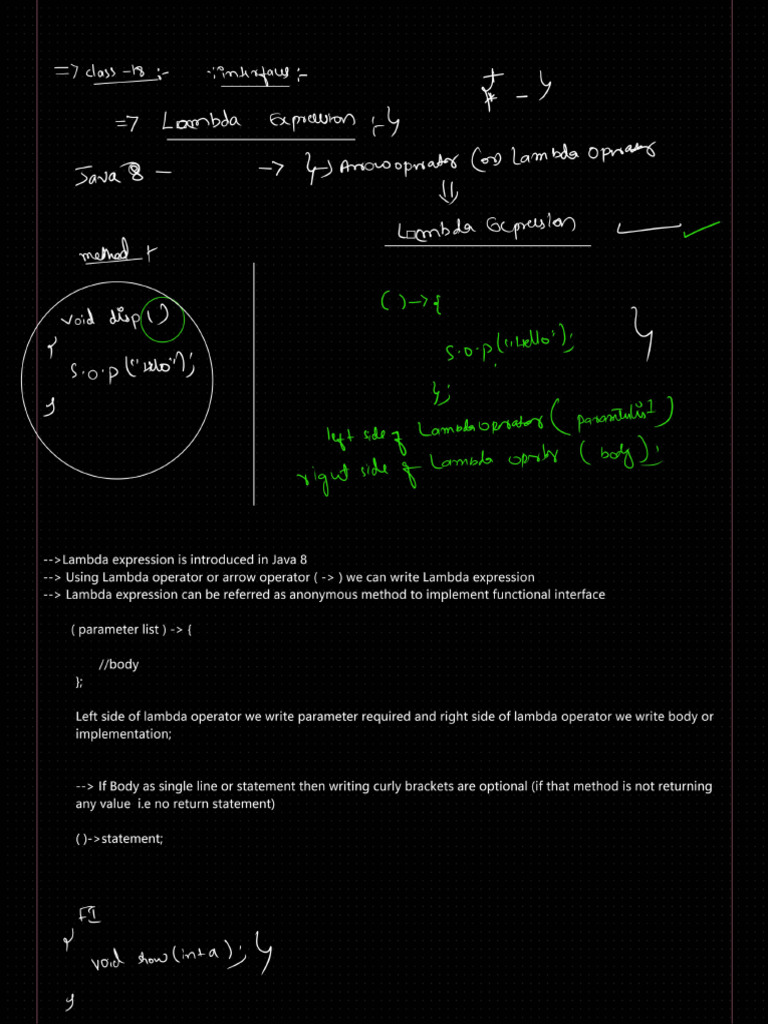 => class -18 :- interface :-
=> Lambda Expression :-
Java 8 - -> Arrow operator (or) Lambda Operator
Lambda Expression
method
void disp()
{
S.o.p("Hello");
}
() -> {
S.o.p("Hello");
};
left side of Lambda Operator (parameter list)
right side of Lambda operator (body);
-->Lambda expression is introduced in Java 8
--> Using Lambda operator or arrow operator ( -> ) we can write Lambda expression
--> Lambda expression can be referred as anonymous method to implement functional interface
( parameter list ) -> {
//body
};
Left side of lambda operator we write parameter required and right side of lambda operator we write body or
implementation;
--> If Body as single line or statement then writing curly brackets are optional (if that method is not returning
any value i.e no return statement)
( )->statement;
FI
{
void show(int a);
}